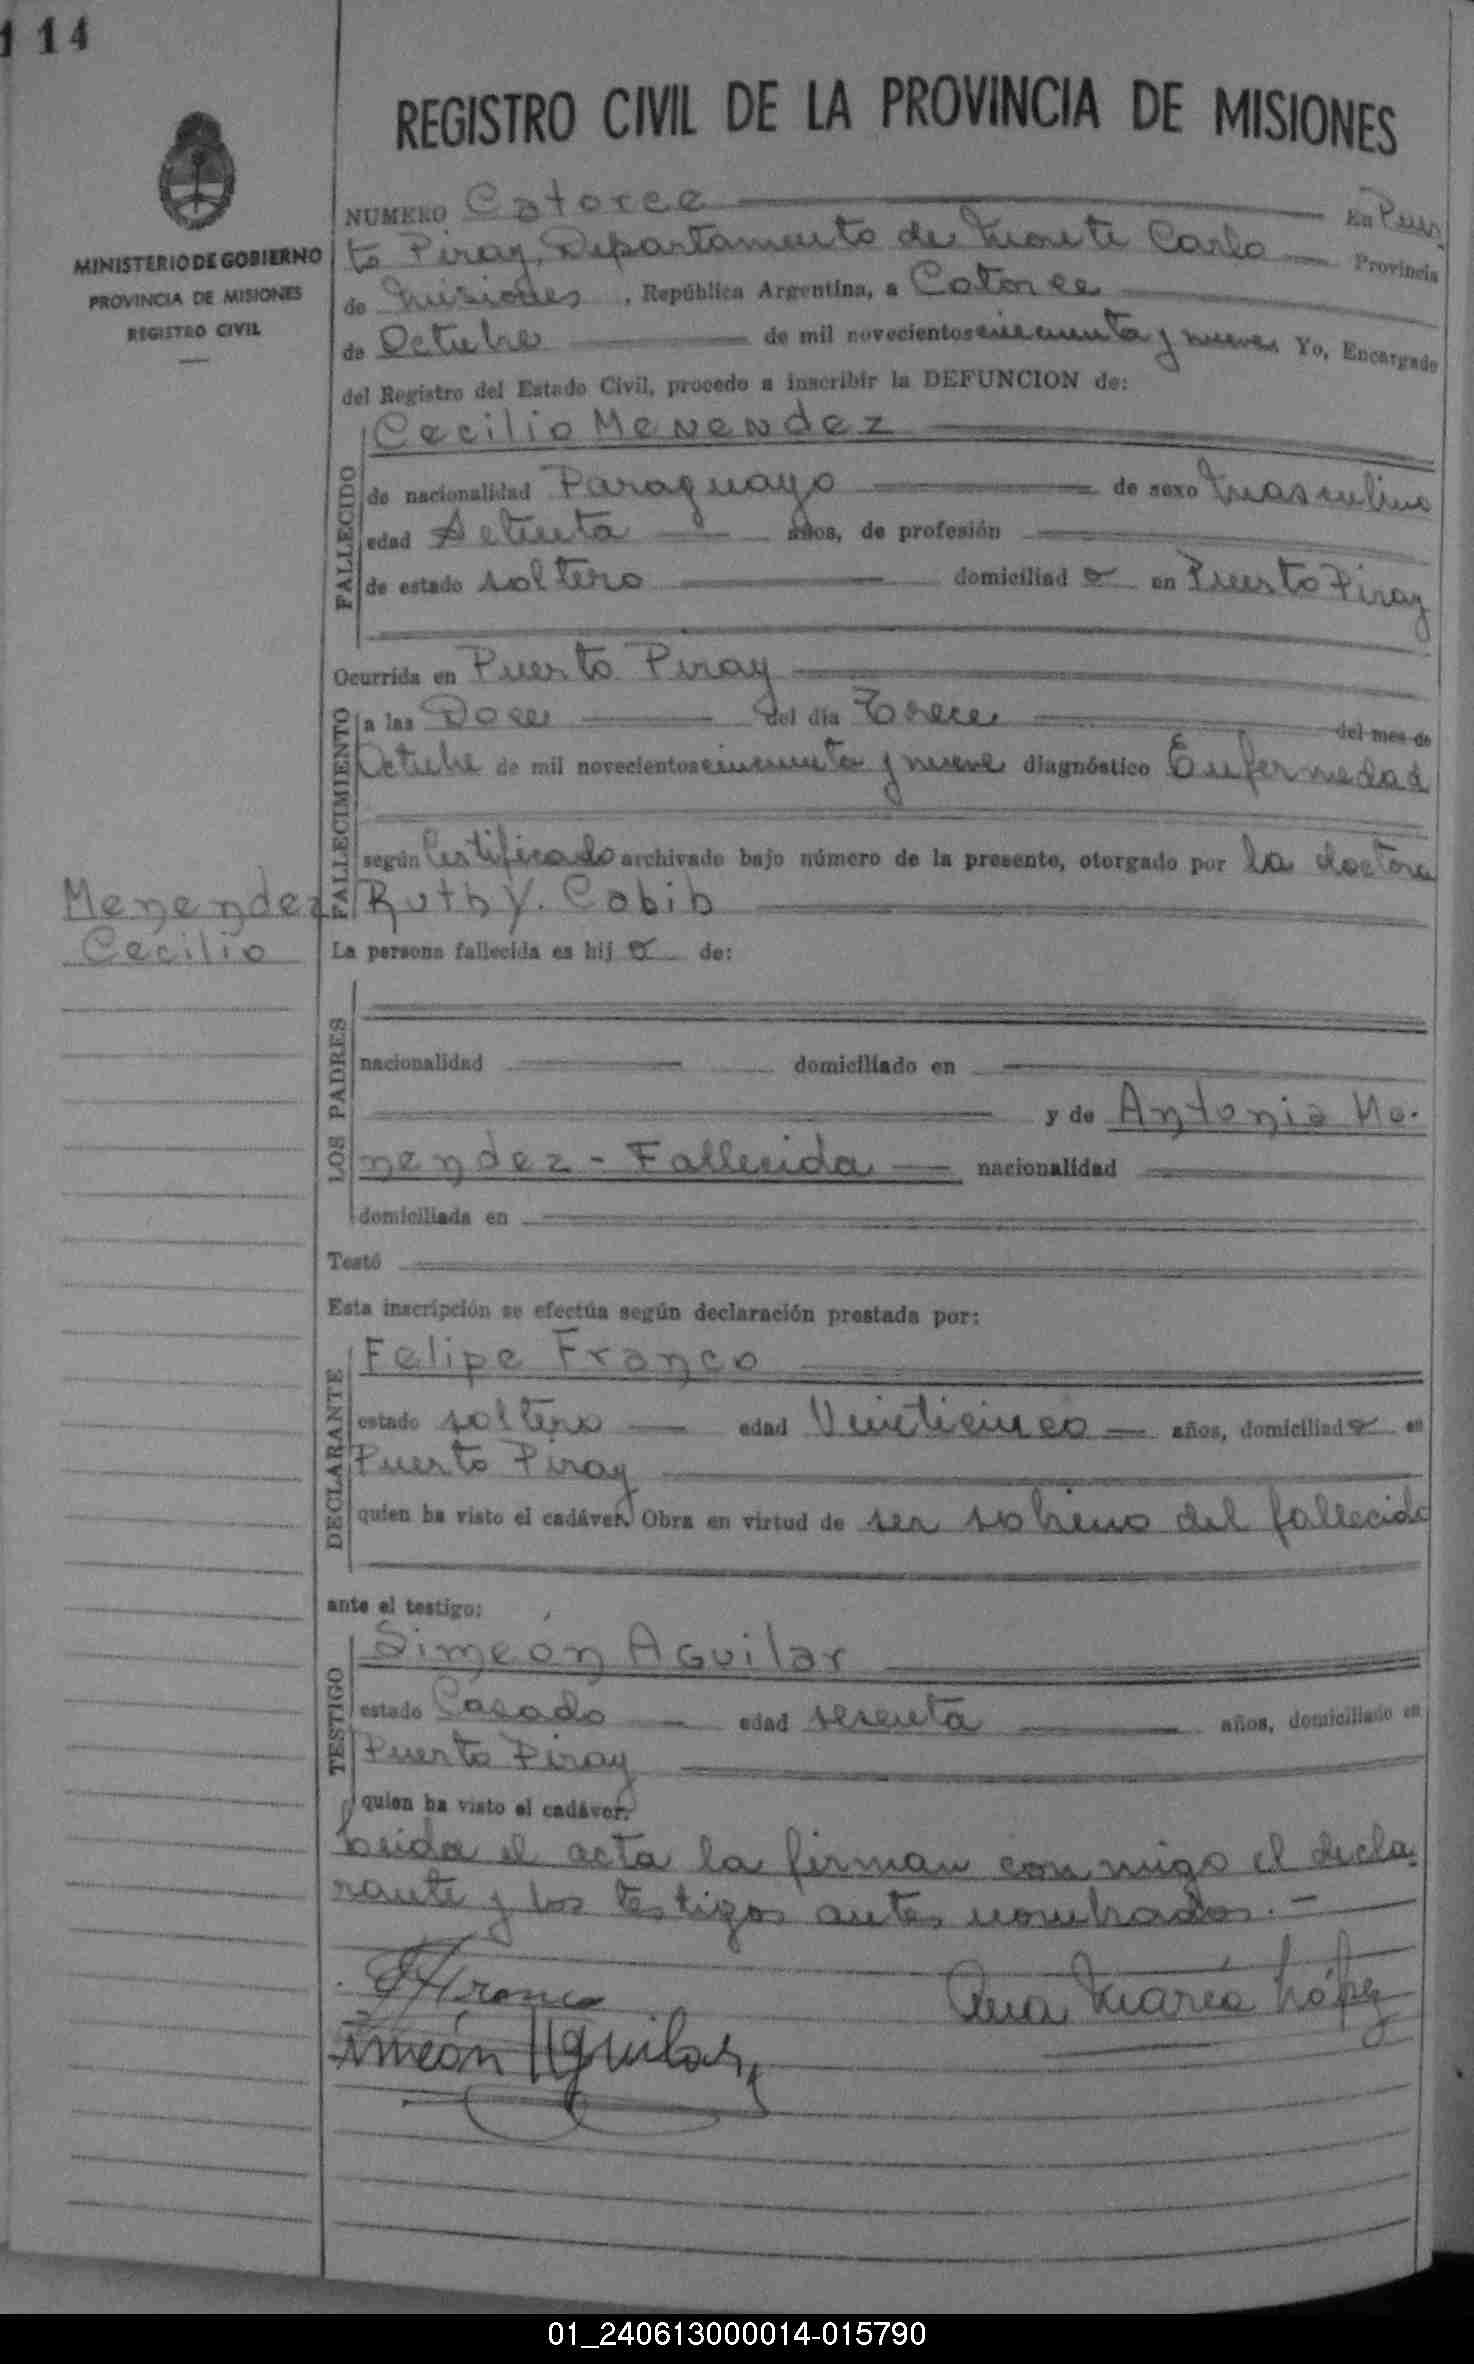 114
REGISTRO CIVIL DE LA PROVINCIA DE MISIONES
MINISTERIO DE GOBIERNO
PROVINCIA DE MISIONES
REGISTRO CIVIL
NUMERO Catorce En Puer
to Piray, Departamento de Monte Carlo Provincia
de Misiones, República Argentina, a Catorce
de Octubre de mil novecientos cincuenta y nueve Yo, Encargado
del Registro del Estado Civil, procedo a inscribir la DEFUNCION de:
FALLECIDO
Cecilio Menendez
de nacionalidad Paraguayo de sexo Masculino
edad Setenta años, de profesión
de estado soltero domiciliad o en Puerto Piray
Ocurrida en Puerto Piray
FALLECIMIENTO
a las Doce del día Trece del mes de
Octubre de mil novecientos cincuenta y nueve diagnóstico Enfermedad
según Certificado archivado bajo número de la presente, otorgado por la doctora
Ruth Y. Cabib
Menendez
Cecilio
La persona fallecida es hij o de:
LOS PADRES
nacionalidad domiciliado en
y de Antonia Me-
nendez - Fallecida nacionalidad
domiciliada en
Testó
Esta inscripción se efectúa según declaración prestada por:
DECLARANTE
Felipe Franco
estado soltero edad Veinticinco años, domiciliad o en
Puerto Piray
quien ha visto el cadáver. Obra en virtud de ser sobrino del fallecido
ante el testigo:
TESTIGO
Simeón Aguilar
estado Casado edad sesenta años, domiciliado en
Puerto Piray
quien ha visto el cadáver.
Leida el acta la firman conmigo el decla-
rante y los testigos antes nombrados. -
Franco
Ana María López
Simeón Aguilar
01_240613000014-015790